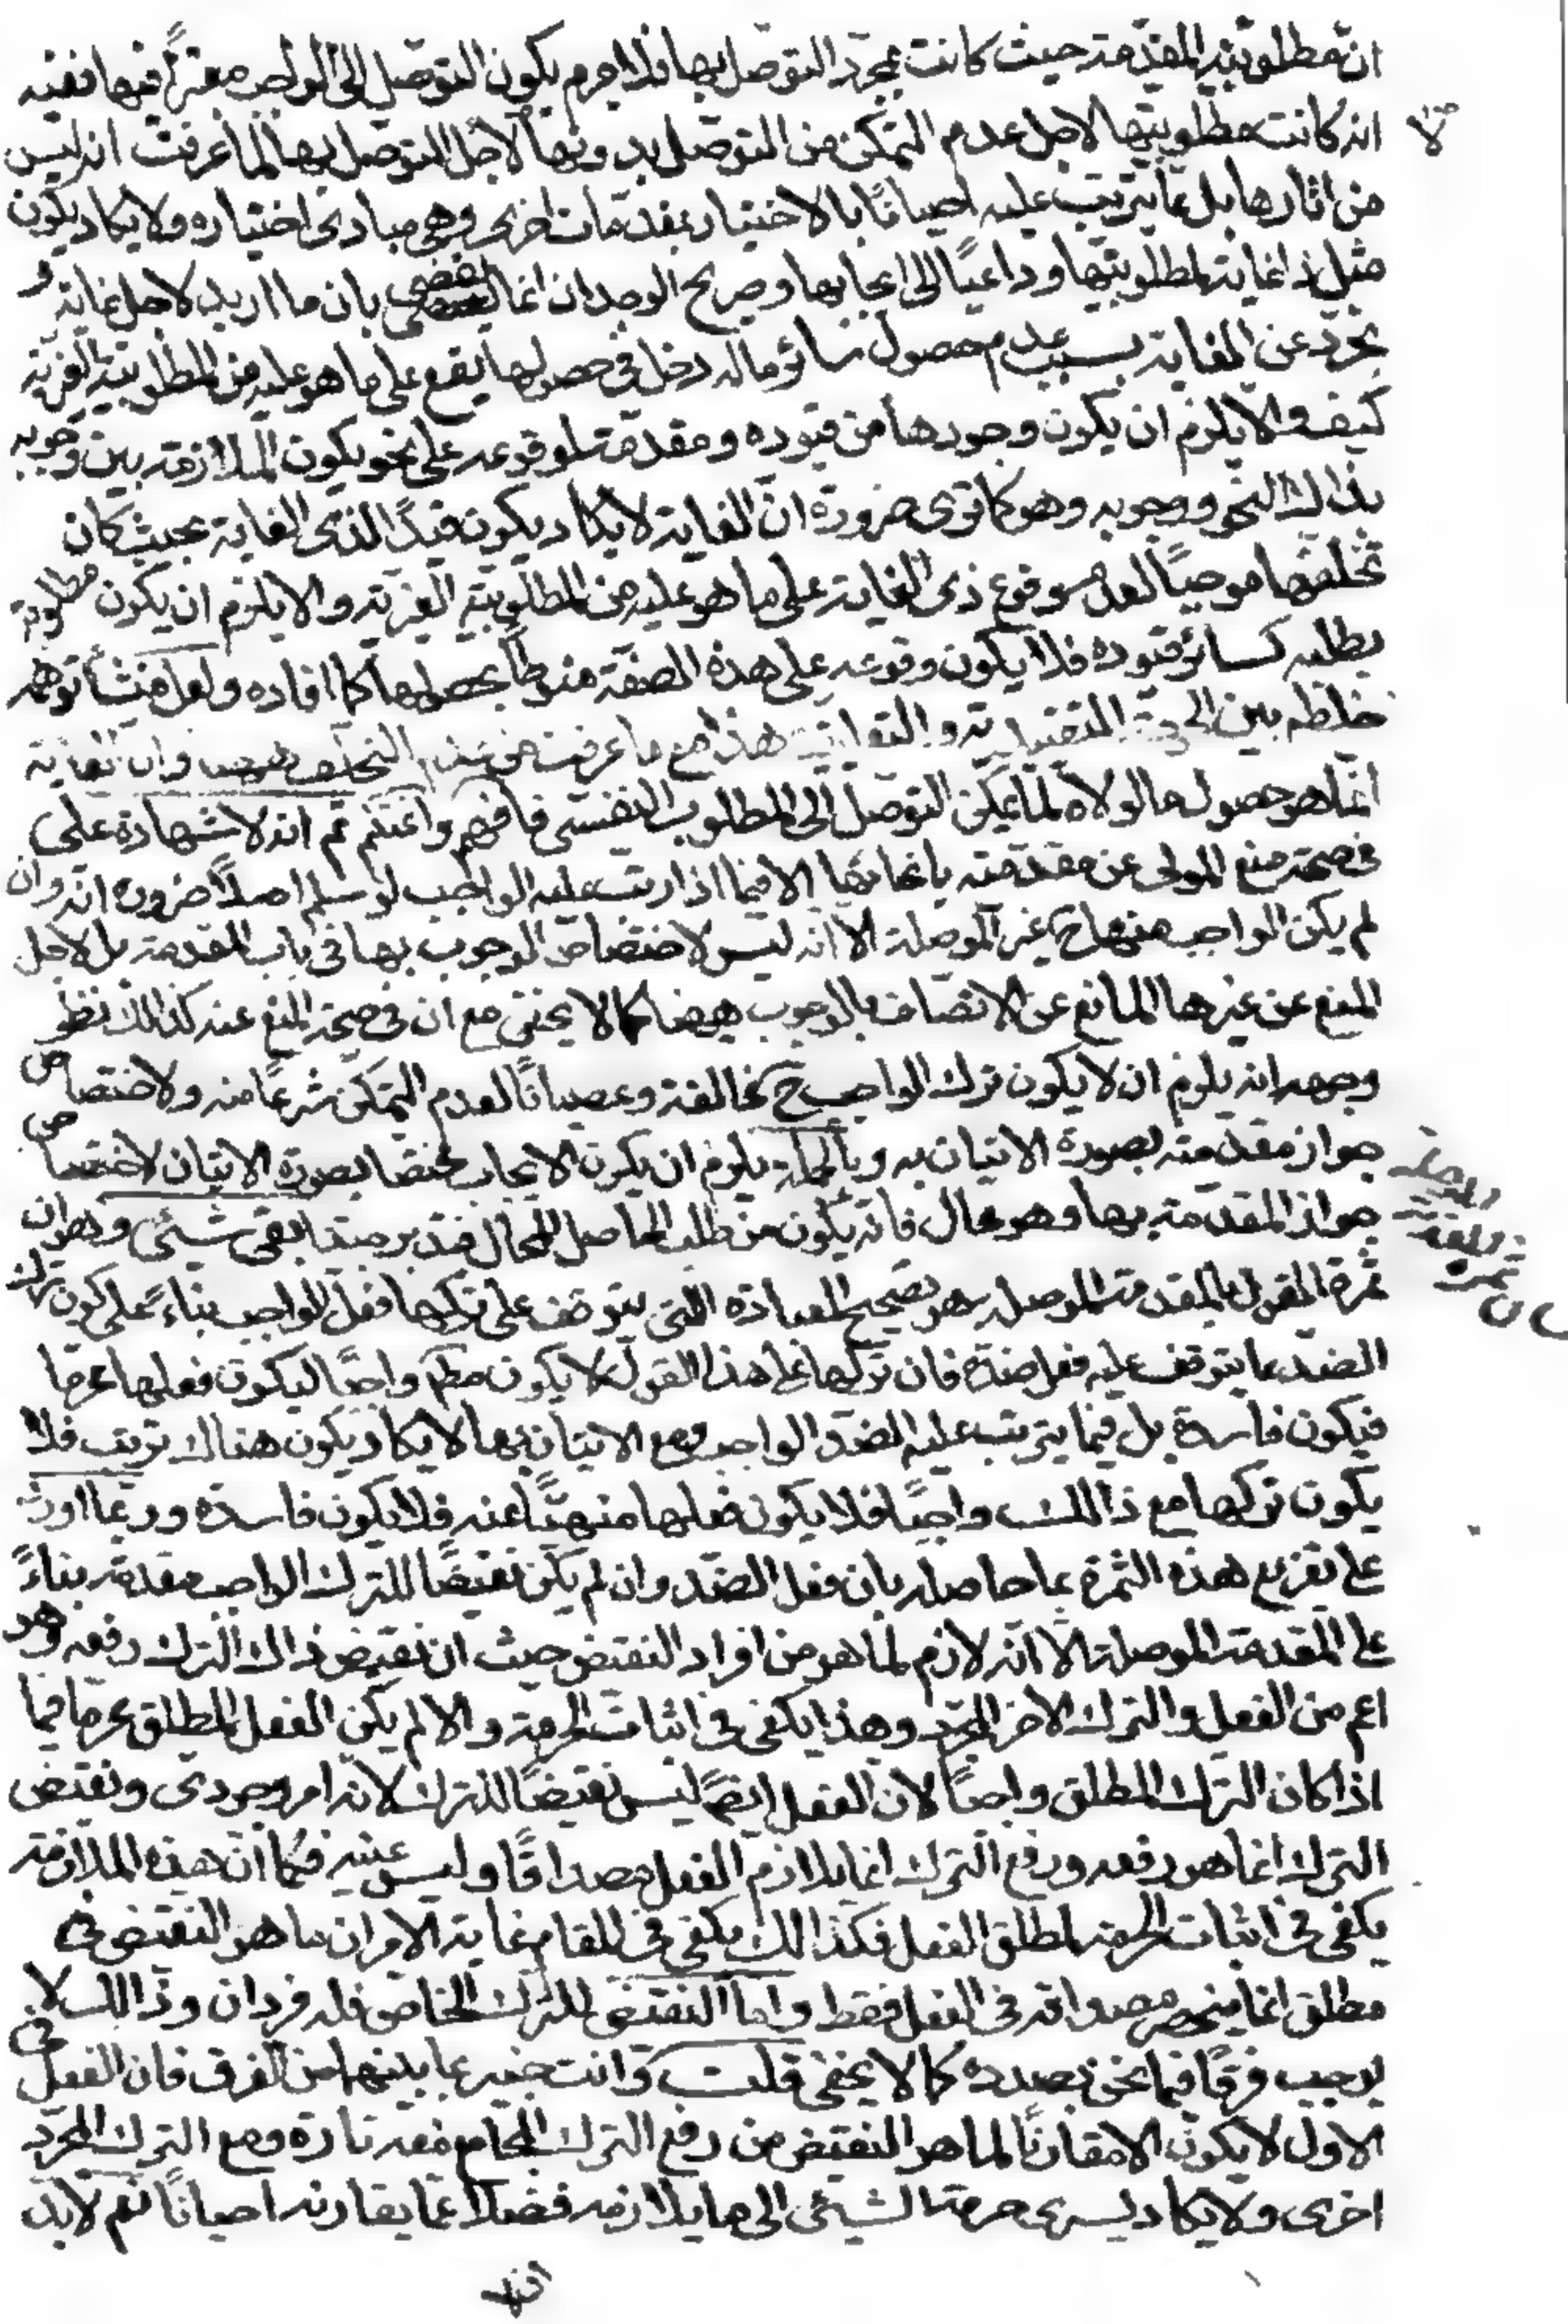 ان مطلوبية المقدمة حيث كانت بمجرد التوصل بها فلا جرم يكون التوصل الى الواجب معتبرا فيها ففيه
انه كانت مطلوبيتها لاجل عدم التمكن من التوصل بدونها لا لاجل التوصل بها لما عرفت انه ليس
من اثارها بل مما يترتب عليه احيانا بالاختيار بمقدمات اخرى وهى مبادى اختياره ولا يكاد يكون
مثل ذا غاية لمطلوبيتها وداعيا الى ايجابها وصريح الوجدان انما يقضى بان ما اريد لاجل غاية و
تجرد عن الغاية بسبب عدم حصول سائر ماله دخل فى حصولها يقع على ما هو عليه من المطلوبية الغيرية
كيف والا يلزم ان يكون وجودها من قيوده ومقدمة لوقوعه على نحو يكون الملازمة بين وجوبه
بذالك النحو ووجوبه وهو كما ترى ضرورة ان الغاية لا يكاد يكون قيدا لذى الغاية بحيث كان
تخلفها موجبا لعدم وقوع ذى الغاية على ما هو عليه من المطلوبية الغيرية والا يلزم ان يكون مطلوبة
بطلبه كسائر قيوده فلا يكون وقوعه على هذه الصفة منوطا بحصولها كما افاده ولعل منشأ توهمه
خلطه بين الجهة التقييدية والتعليلية هذا مع ما عرفت من عدم التخلف ههنا وان الغاية
انما هو حصول ما لولاه لما يمكن التوصل الى المطلوب النفسى فافهم واغتنم ثم انه لا شهادة على
فى صحة منع المولى عن مقدمته بانحائها الا فيما اذا رتب عليه الواجب لو سلم اصلا ضرورة انه وان
لم يكن الواجب منها ح غير الموصلة الا انه ليس لاختصاص الوجوب بها فى باب المقدمة بل لاجل
المنع عن غيرها المانع عن الاتصاف بالوجوب هيهنا كما لا يخفى مع ان فى صحة المنع عنه كذالك نظر
وجهه انه يلزم ان لا يكون ترك الواجب ح مخالفة وعصيانا لعدم التمكن شرعا منه ولاختصاص
جواز مقدمته بصورة الاتيان به وبالجملة يلزم ان يكون الايجاب مختصا بصورة الاتيان لاختصاص
جواز المقدمة بها وهو محال فانه يكون من طلب الحاصل المحال فتدبر جيدا بقى شئى وهو ان
ثمرة القول بالمقدمة الموصلة هو تصحيح العبادة التى يتوقف على تركها فعل الواجب بناء على كون ترك
الضد مما يتوقف عليه فعل ضده فان تركها على هذا القول لا يكون مطم واجبا ليكون فعلها محرما
فيكون فاسدة بل فيما يترتب عليه الضد الواجب ومع الاتيان بها لا يكاد يكون هناك ترتب فلا
يكون تركها مع ذالك واجبا فلا يكون فعلها منهيا عنه فلا يكون فاسدة وربما اورد
على تفريع هذه الثمرة بما حاصله بان فعل الضد وان لم يكن نقيضا للترك الواجب مقدمة بناء
على المقدمة الموصلة الا انه لازم لما هو من افراد النقيض حيث ان نقيض ذاك الترك رفعه وهو
اعم من الفعل والترك الاخر المجرد وهذا يكفى فى اثبات الحرمة والا لم يكن الفعل المطلق محرما فيما
اذا كان الترك المطلق واجبا لان الفعل ايضا ليس نقيضا للترك لانه امر وجودى ونقيض
الترك انما هو رفعه ورفع الترك انما يلازم الفعل مصداقا وليس عينه فكما ان هذه الملازمة
يكفى فى اثبات الحرمة لمطلق الفعل فكذالك يكفى فى المقام غاية الامر ان ما هو النقيض فى
مطلق انما ينحصر مصداقه فى الفعل فقط واما النقيض للترك الخاص فله فردان وذالك لا
يوجب فرقا فيما نحن بصدده كما لا يخفى قلت وانت خبير بما بينهما من الفرق فان الفعل فى
الاول لا يكون الا مقارنا لما هو النقيض من رفع الترك المجامع معه تارة ومع الترك المجرد
اخرى ولا يكاد يسرى حرمة الشيئى الى ما يلازمه فضلا عما يقارنه احيانا نعم لابد